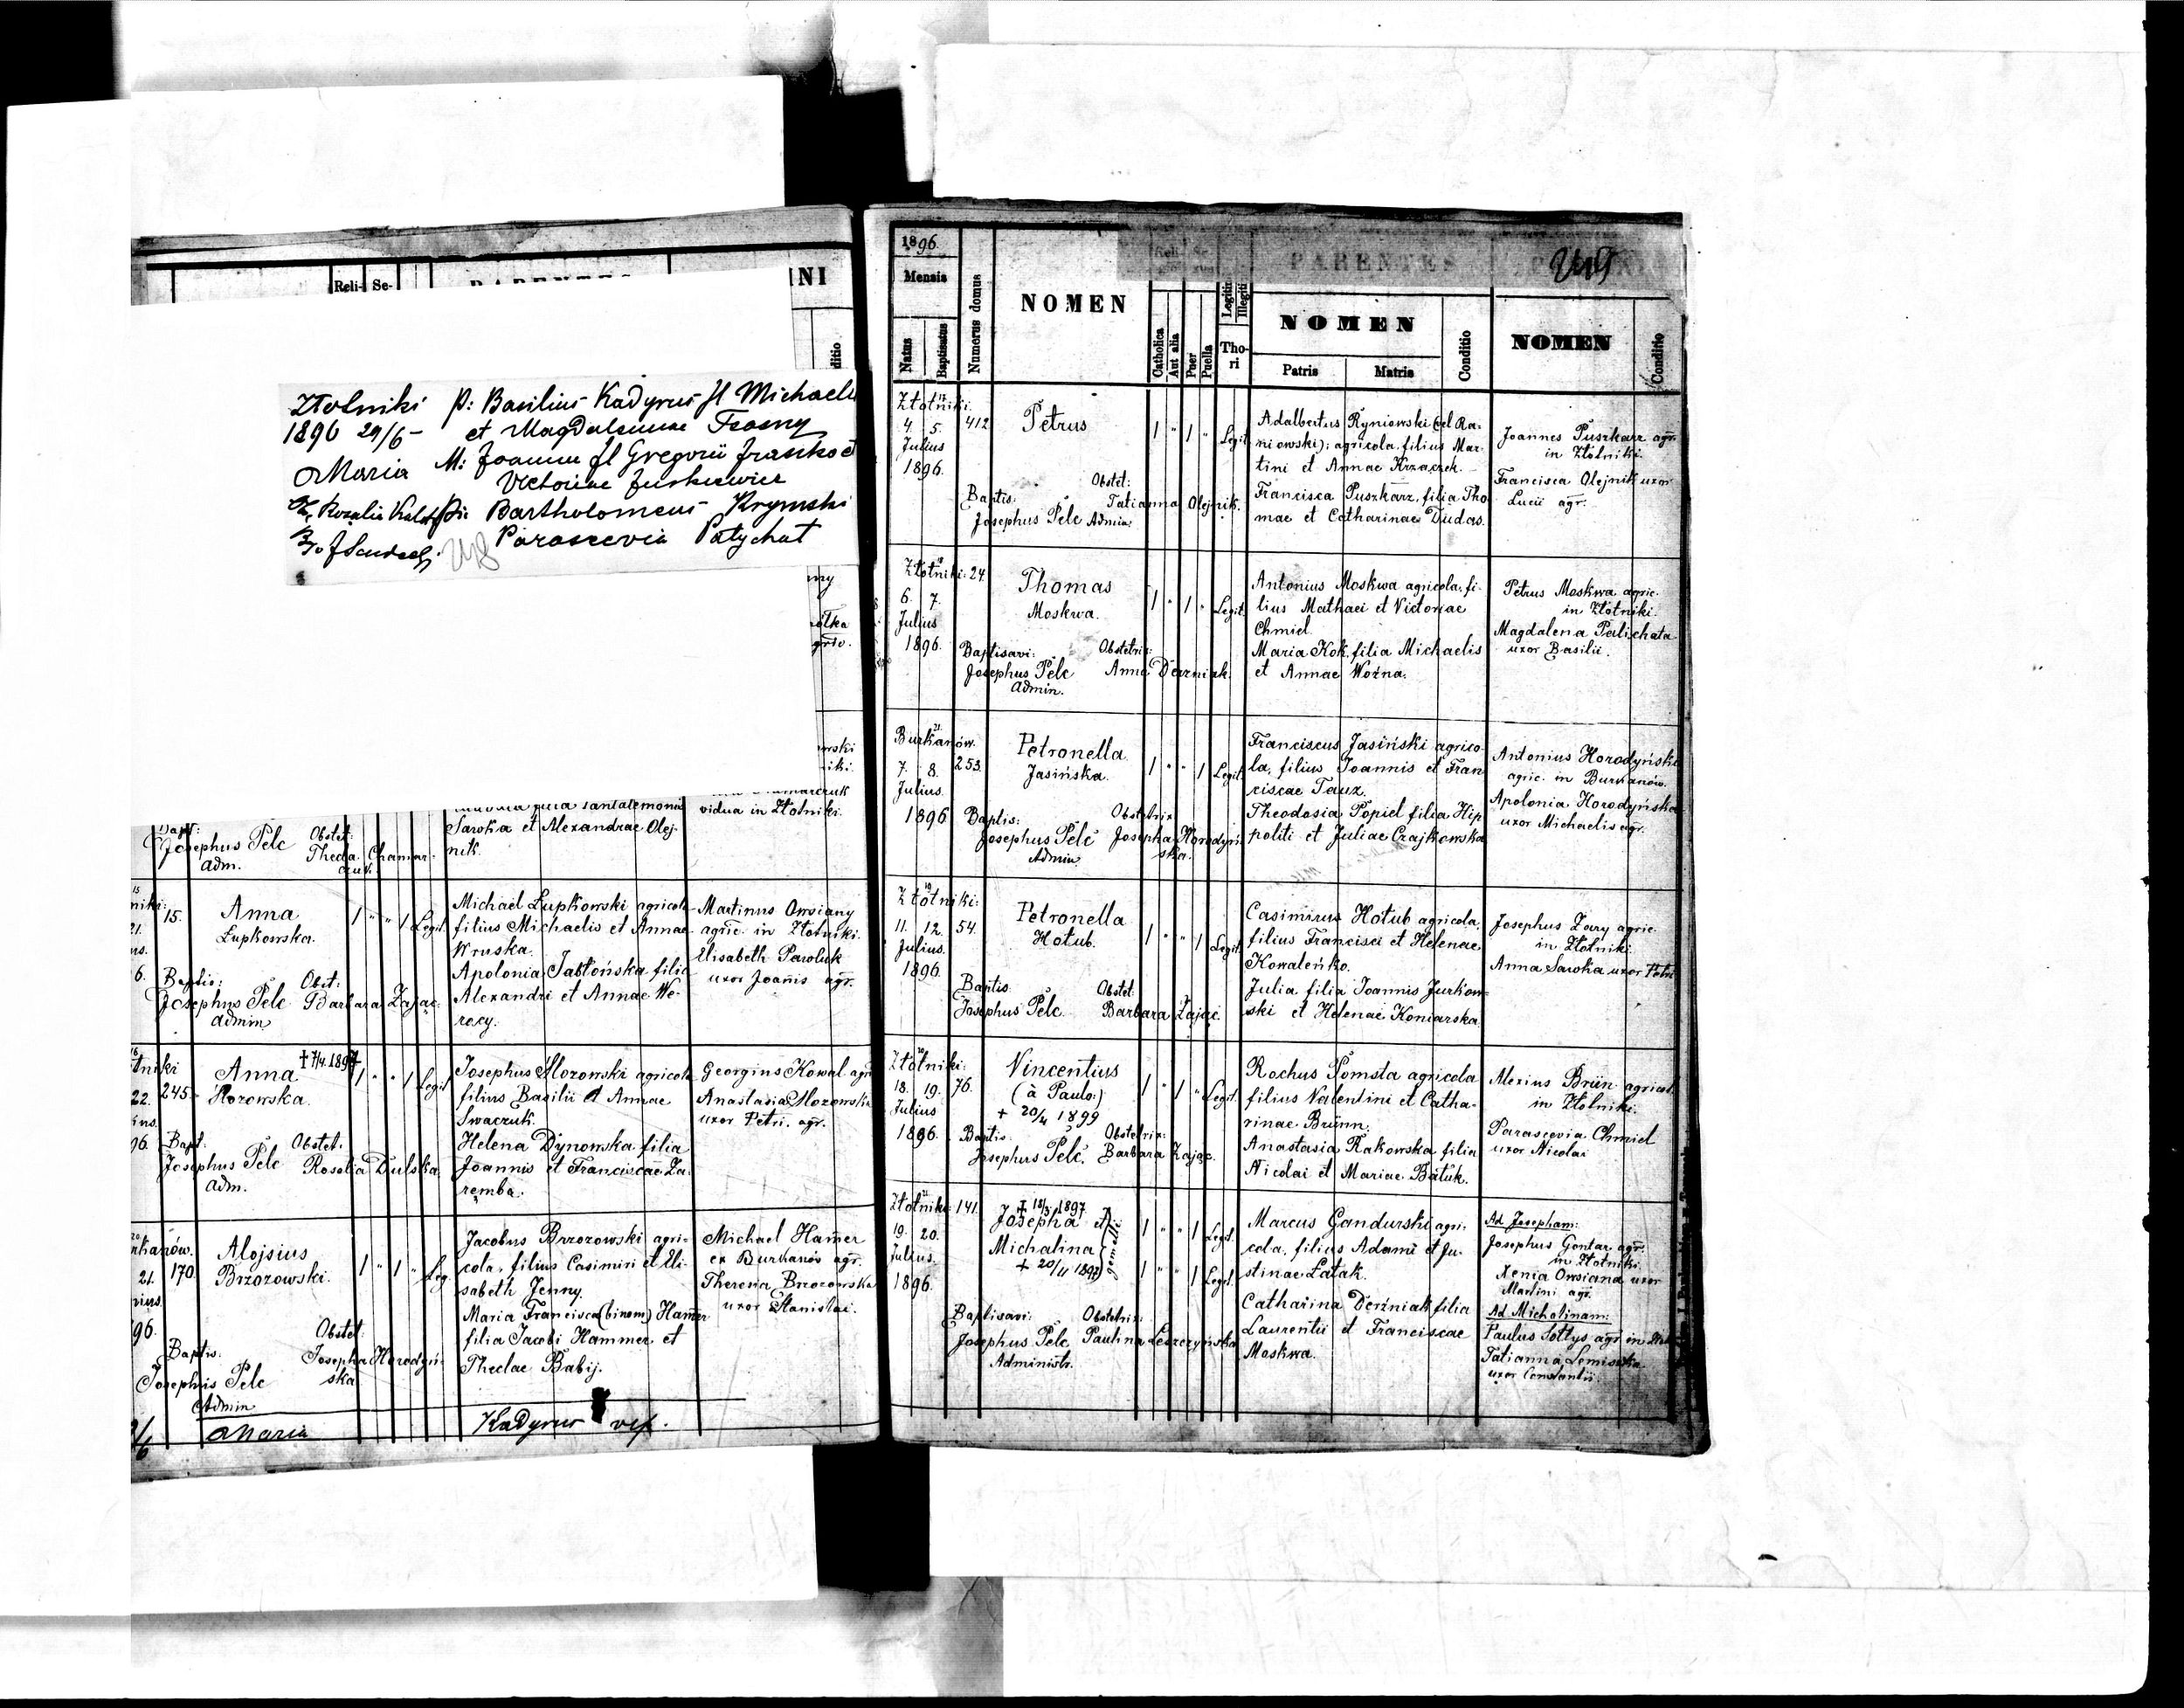 Reli- Se-
INI
ditio
Złotniki p: Basilius Kadyrus fl Michaelis
1896 29/6 - et Magdalenae
Maria M: Joanna fl Gregorii Fraszko et
Victoriae Jurkiewicz
Bartholomeus Krymski
Parascevia Patychat
vidua in Złotniki.
Sawka et Alexandrae Olej-
nik.
Bapt: Obstet:
Josephus Pelc Thecla Chamar-
Adm. czuk.
15. Anna 1 " " 1 Legit.
Łupkowska.
Michael Łupkowski agricola
filius Michaelis et Annae
Wruska.
Apolonia Jabłońska filia
Alexandri et Annae We-
recy.
Martinus Owsiany
agric. in Złotniki.
Elisabeth Pawluk
uxor Joannis agr.
Baptis: Obst:
Josephus Pelc Barbara Zając.
Admin
245 Anna † 7/4 1897 1 " " 1 Legit
Mozowska.
Josephus Mozowski agricola
filius Basilii et Annae
Swaczuk.
Helena Dynowska filia
Joannis et Franciscae Za-
remba.
Georgius Kowal agr
Anastasia Mozowska
uxor Petri. agr.
Bapt. Obstet.
Josephus Pelc Rosalia Dulska
Adm.
170. Alojsius 1 " 1 " Leg.
Brzozowski.
Jacobus Brzozowski agri-
cola, filius Casimiri et Eli-
sabeth Jenny.
Maria Francisca (binom) Hamer
filia Jacobi Hammer et
Theclae Babij.
Michael Hamer
ex Burkanów agr.
Theresia Brzozowska
uxor Stanislai.
Baptis: Obstet:
Josephus Pelc Josepha Horodyń-
Admin ska
Maria Kadyrus
1896.
Mensis
Natus
Baptisatus
Numerus domus
NOMEN
Reli- Se-
Catholica
Aut alia
Puer
Puella
Legitimi
Illegiti
Tho-
ri
PARENTES
NOMEN
Patris Matris
Conditio
NOMEN
Conditio
Złotniki. 17
4. 5. 412 Petrus 1 " 1 " Legit.
Julius
1896.
Adalbertus Ryniowski (vel Ra-
niowski); agricola, filius Mar-
tini et Annae Krzaczek.
Francisca Puszkarz, filia Tho-
mae et Catharinae Dudas.
Joannes Puszkarz agr.
in Złotniki.
Francisca Olejnik uxor
Lucii agr.
Baptis: Obstet:
Josephus Pelc Admin. Tatianna Olejnik.
Złotniki: 24. 18
6. 7. Thomas 1 " 1 " Legit.
Julius Moskwa.
1896.
Antonius Moskwa agricola, fi-
lius Mathaei et Victoriae
Chmiel.
Maria Kok, filia Michaelis
et Annae Woźna.
Petrus Moskwa agric.
in Złotniki.
Magdalena Palichata
uxor Basilii.
Baptisavi: Obstetrix:
Josephus Pelc Anna Derzniak.
Admin.
Burkanów. 21
7. 8. 253. Petronella 1 " " 1 Legit.
Julius. Jasińska.
1896
Franciscus Jasiński agrico-
la, filius Joannis et Fran-
ciscae Taux.
Theodosia Popiel filia Hip-
politi et Juliae Czajkowska
Antonius Horodyński
agric. in Burkanów.
Apolonia Horodyńska
uxor Michaelis agr.
Baptis: Obstetrix
Josephus Pelc Josepha Horodyń-
Admin. ska.
Złotniki: 19
11. 12. 54. Petronella 1 " " 1 Legit
Julius. Hołub.
1896.
Casimirus Hołub agricola,
filius Francisci et Helenae
Kowaleńko.
Julia filia Joannis Jurkow-
ski et Helenae Koniarska.
Josephus Zary agric.
in Złotniki.
Anna Sawka uxor Petri
Baptis: Obstet:
Josephus Pelc. Barbara Zając.
Złotniki: 20
18. 19. 76. Vincentius 1 " 1 " Legit.
Julius (à Paulo:)
1896. † 20/4 1899
Rochus Somsta agricola
filius Valentini et Catha-
rinae Brünn.
Anastasia Rakowska filia
Nicolai et Mariae Batuk.
Alexius Brün agricol.
in Złotniki.
Parascevia Chmiel
uxor Nicolai
Baptis: Obstetrix:
Josephus Pelc. Barbara Zając.
Złotniki 141. 21
19. 20. † 18/3 1897
Julius. Josepha et 1 " " 1 Legit.
1896. Michalina gemellae
† 20/11 1897 1 " " 1 Legit.
Marcus Gandurski agri-
cola, filius Adami et Ju-
stinae Łatak.
Catharina Derżniak filia
Laurentii et Franciscae
Moskwa.
Ad Josepham:
Josephus Gontar agr.
in Złotniki.
Xenia Owsiana uxor
Martini agr.
Ad Michalinam:
Paulus Sołtys agr in Złot
Tatianna Lemiszka
uxor Constantii.
Baptisavi: Obstetrix:
Josephus Pelc Paulina Leszczyńska
Administr.